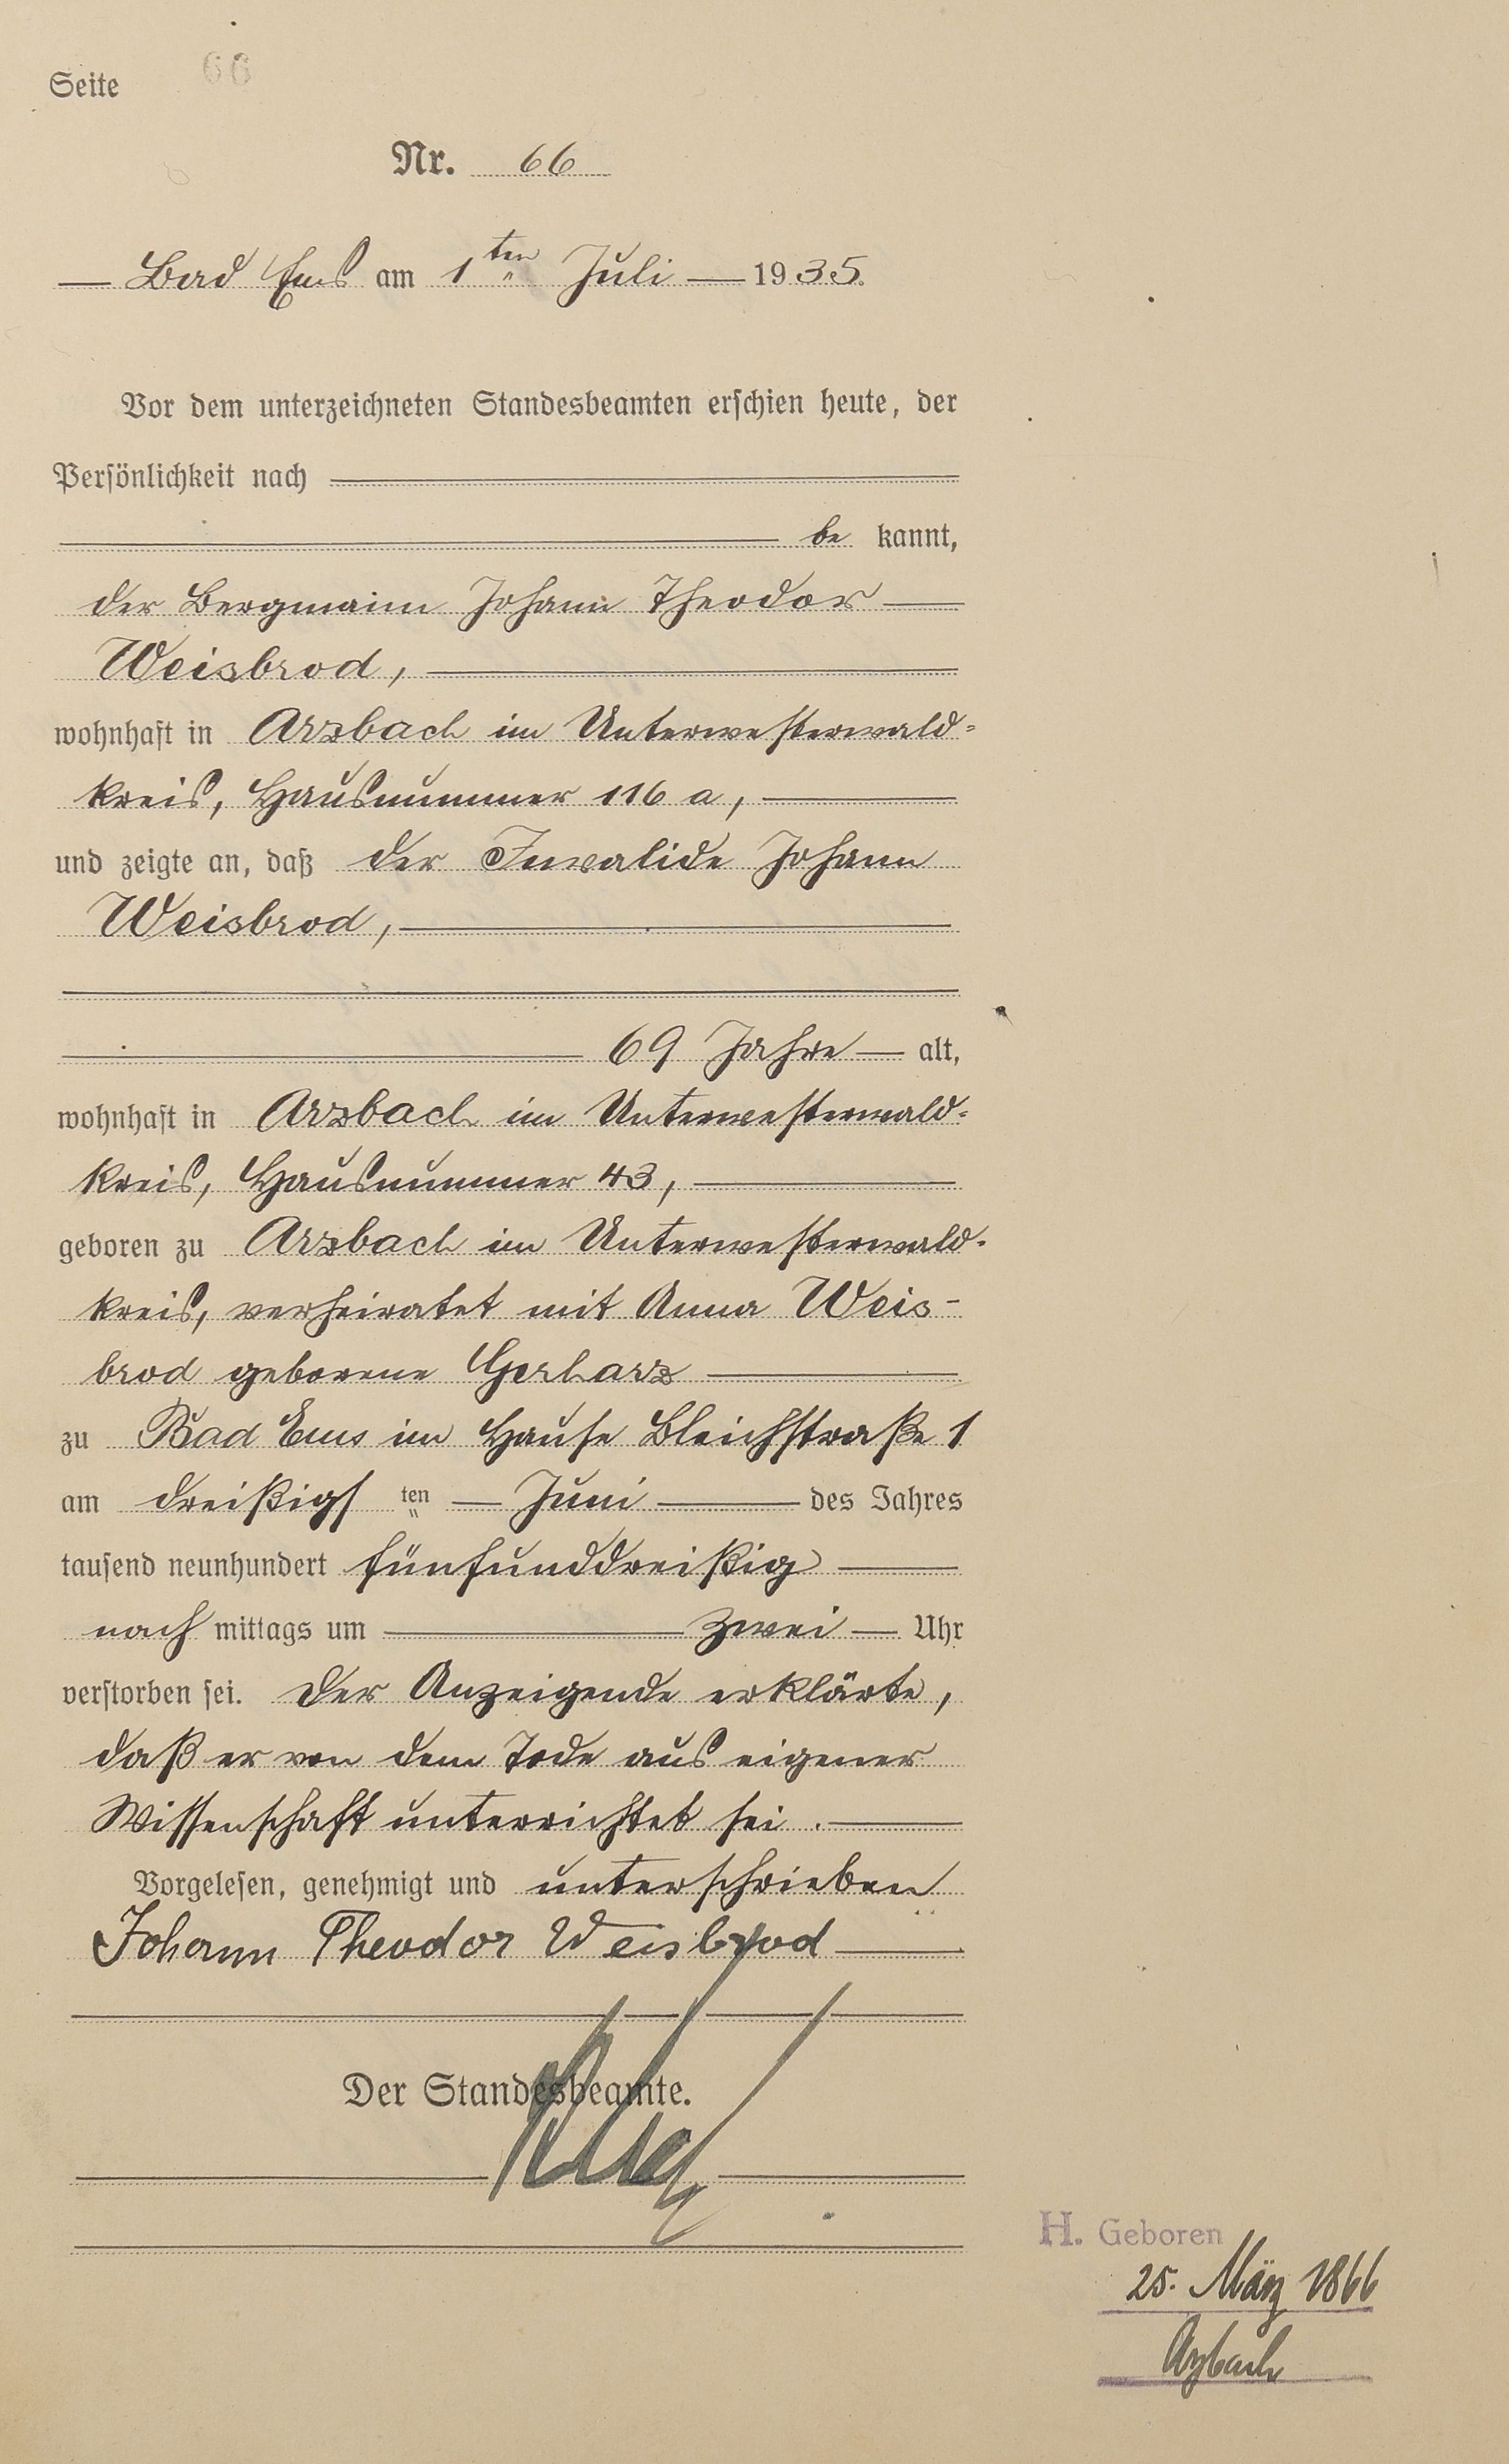 Seite 66
Nr. 66
Bad Ems am 1ten Juli 1935.
Vor dem unterzeichneten Standesbeamten erschien heute, der
Persönlichkeit nach
be kannt,
der Bergmann Johann Theodor
Weisbrod,
wohnhaft in Arzbach im Unterwesterwald-
kreis, Hausnummer 116 a,
und zeigte an, daß der Invalide Johann
Weisbrod,
69 Jahre alt,
wohnhaft in Arzbach im Unterwesterwald-
kreis, Hausnummer 43,
geboren zu Arzbach im Unterwesterwald-
kreis, verheiratet mit Anna Weis-
brod geborene Gerharz
zu Bad Ems im Hause Bleichstraße 1
am dreißigsten Juni des Jahres
tausend neunhundert fünfunddreißig
nach mittags um zwei Uhr
verstorben sei. Der Anzeigende erklärte,
daß er von dem Tode aus eigener
Wissenschaft unterrichtet sei.
Vorgelesen, genehmigt und unterschrieben
Johann Theodor Weisbrod
Der Standesbeamte.
H. Geboren
25. März 1866
Arzbach